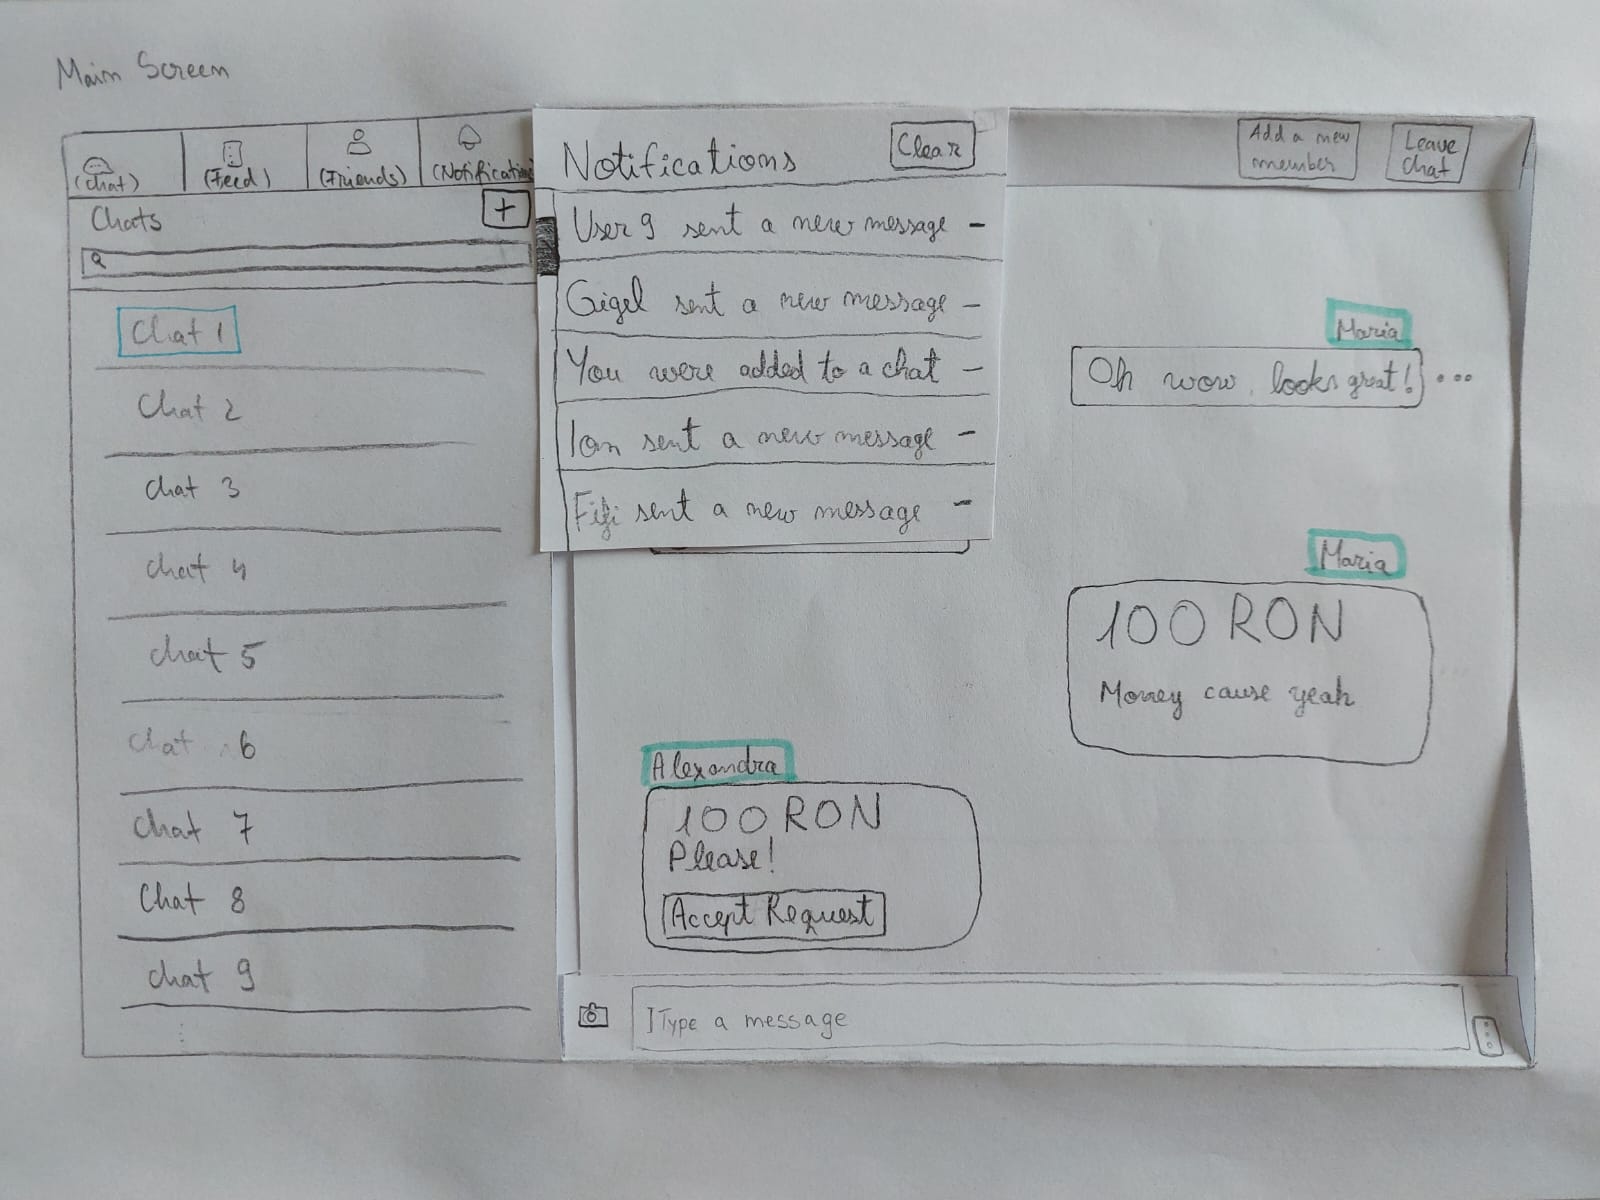 Main Screen
(Chat)
(Feed)
(Friends)
(Notification
Chats
+
Chat 1
Chat 2
Chat 3
Chat 4
Chat 5
Chat 6
Chat 7
Chat 8
Chat 9
Notifications
Clear
User 9 sent a new message -
Gigel sent a new message -
You were added to a chat -
Ion sent a new message -
Fifi sent a new message -
Add a new
member
Leave
Chat
Maria
Oh wow, looks great! ...
Maria
100 RON
Money cause yeah
Alexandra
100 RON
Please!
Accept Request
Type a message